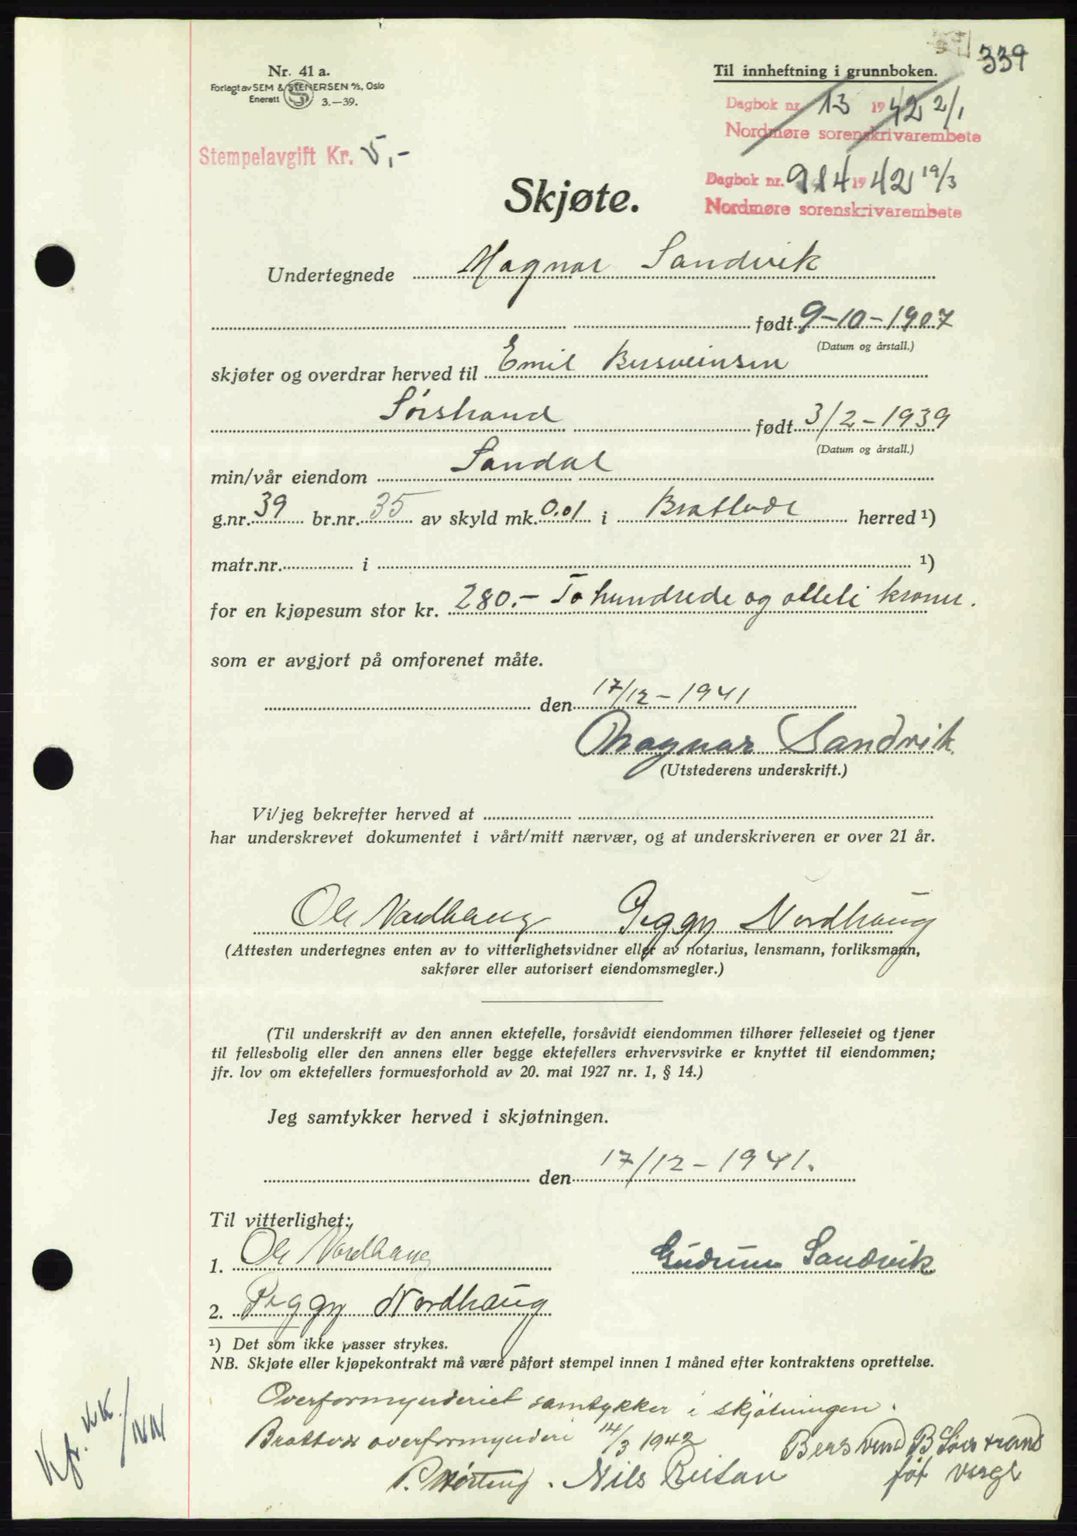 339
Nr. 41 a.
Forlagt av SEM & STENERSEN A/S, Oslo
Enerett 3.—39.
Til innheftning i grunnboken.
Dagbok nr. 13 1942 2/1
Nordmøre sorenskrivarembete
Stempelavgift Kr. 5,-
Dagbok nr. 914 1942 19/3
Nordmøre sorenskrivarembete
Skjøte.
Undertegnede Magnar Sandvik
født 9-10-1907
(Datum og årstall.)
skjøter og overdrar herved til Emil Bersveinsen
Sørstrand født 3/2-1939
(Datum og årstall.)
min/vår eiendom Sandal
g.nr. 39 br.nr. 35 av skyld mk. 0.01 i Brattvær herred ¹)
matr.nr. i ¹)
for en kjøpesum stor kr. 280.- To hundrede og otteti kroner.
som er avgjort på omforenet måte.
den 17/12-1941
Magnar Sandvik
(Utstederens underskrift.)
Vi/jeg bekrefter herved at
har underskrevet dokumentet i vårt/mitt nærvær, og at underskriveren er over 21 år.
Ole Nordhaug Peggy Nordhaug
(Attesten undertegnes enten av to vitterlighetsvidner eller av notarius, lensmann, forliksmann,
sakfører eller autorisert eiendomsmegler.)
(Til underskrift av den annen ektefelle, forsåvidt eiendommen tilhører felleseiet og tjener
til fellesbolig eller den annens eller begge ektefellers erhvervsvirke er knyttet til eiendommen;
jfr. lov om ektefellers formuesforhold av 20. mai 1927 nr. 1, § 14.)
Jeg samtykker herved i skjøtningen.
den 17/12-1941.
Til vitterlighet:
1. Ole Nordhaug
Gudrun Sandvik
2. Peggy Nordhaug
¹) Det som ikke passer strykes.
NB. Skjøte eller kjøpekontrakt må være påført stempel innen 1 måned efter kontraktens oprettelse.
Overformynderiet samtykker i skjøtningen.
Brattvær overformynderi 14/3 1942
Bersvend B Sørstrand
Nils
før verge